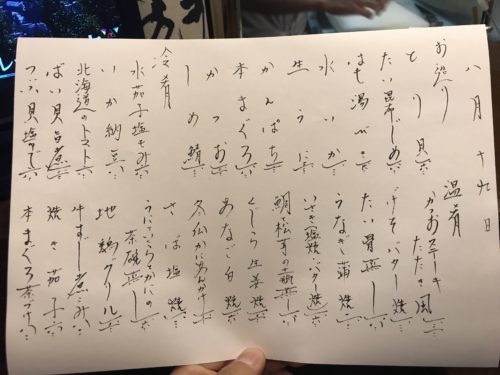 八月十九日
お造り
とり貝
たい昆布じめ
はも湯びき
水いか
生うに
かんぱち
本まぐろ
かつお
しめ鯖
冷肴
水茄子塩もみ
いか納豆
北海道のトマト
ばい貝旨煮
つぶ貝塩ゆで
温肴
かつおステーキ
たたき風
げそバター焼
たい骨蒸し
うなぎ蒲焼
いさき塩焼バター焼
鯛松茸の土瓶蒸し
くじら生姜焼
あなご白焼
冬瓜かにあんかけ
さば塩焼
うにいくらとかにの
茶碗蒸し
地鶏グリル
牛すじ煮こみ
焼き茄子
本まぐろ茶づけ